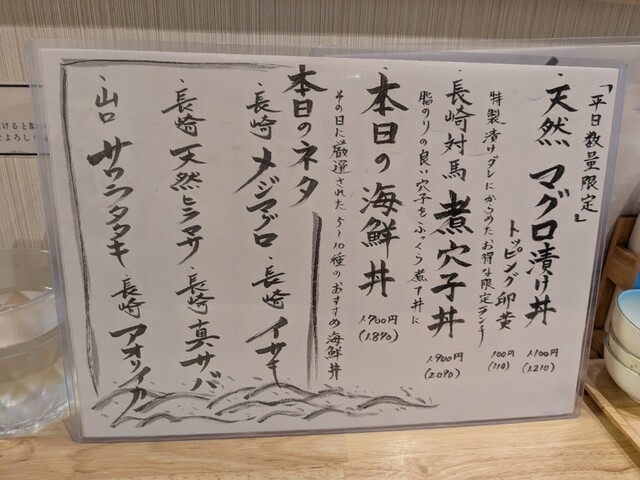 「平日数量限定」
・天然 マグロ漬け丼
1,100円
(1,210)
トッピング 卵黄
100円
(110)
特製漬けダレにからめたお得な限定ランチ
・長崎対馬 煮穴子丼
1,900円
(2,090)
脂のりの良い穴子をふっくら煮て丼に
・本日の海鮮丼
1,700円
(1,870)
その日に厳選された5～10種のおすすめ海鮮丼
本日のネタ
・長崎 メジマグロ
・長崎 イサキ
・長崎 天然ヒラマサ
・長崎 真サバ
・山口 サワラタタキ
・長崎 アオリイカ